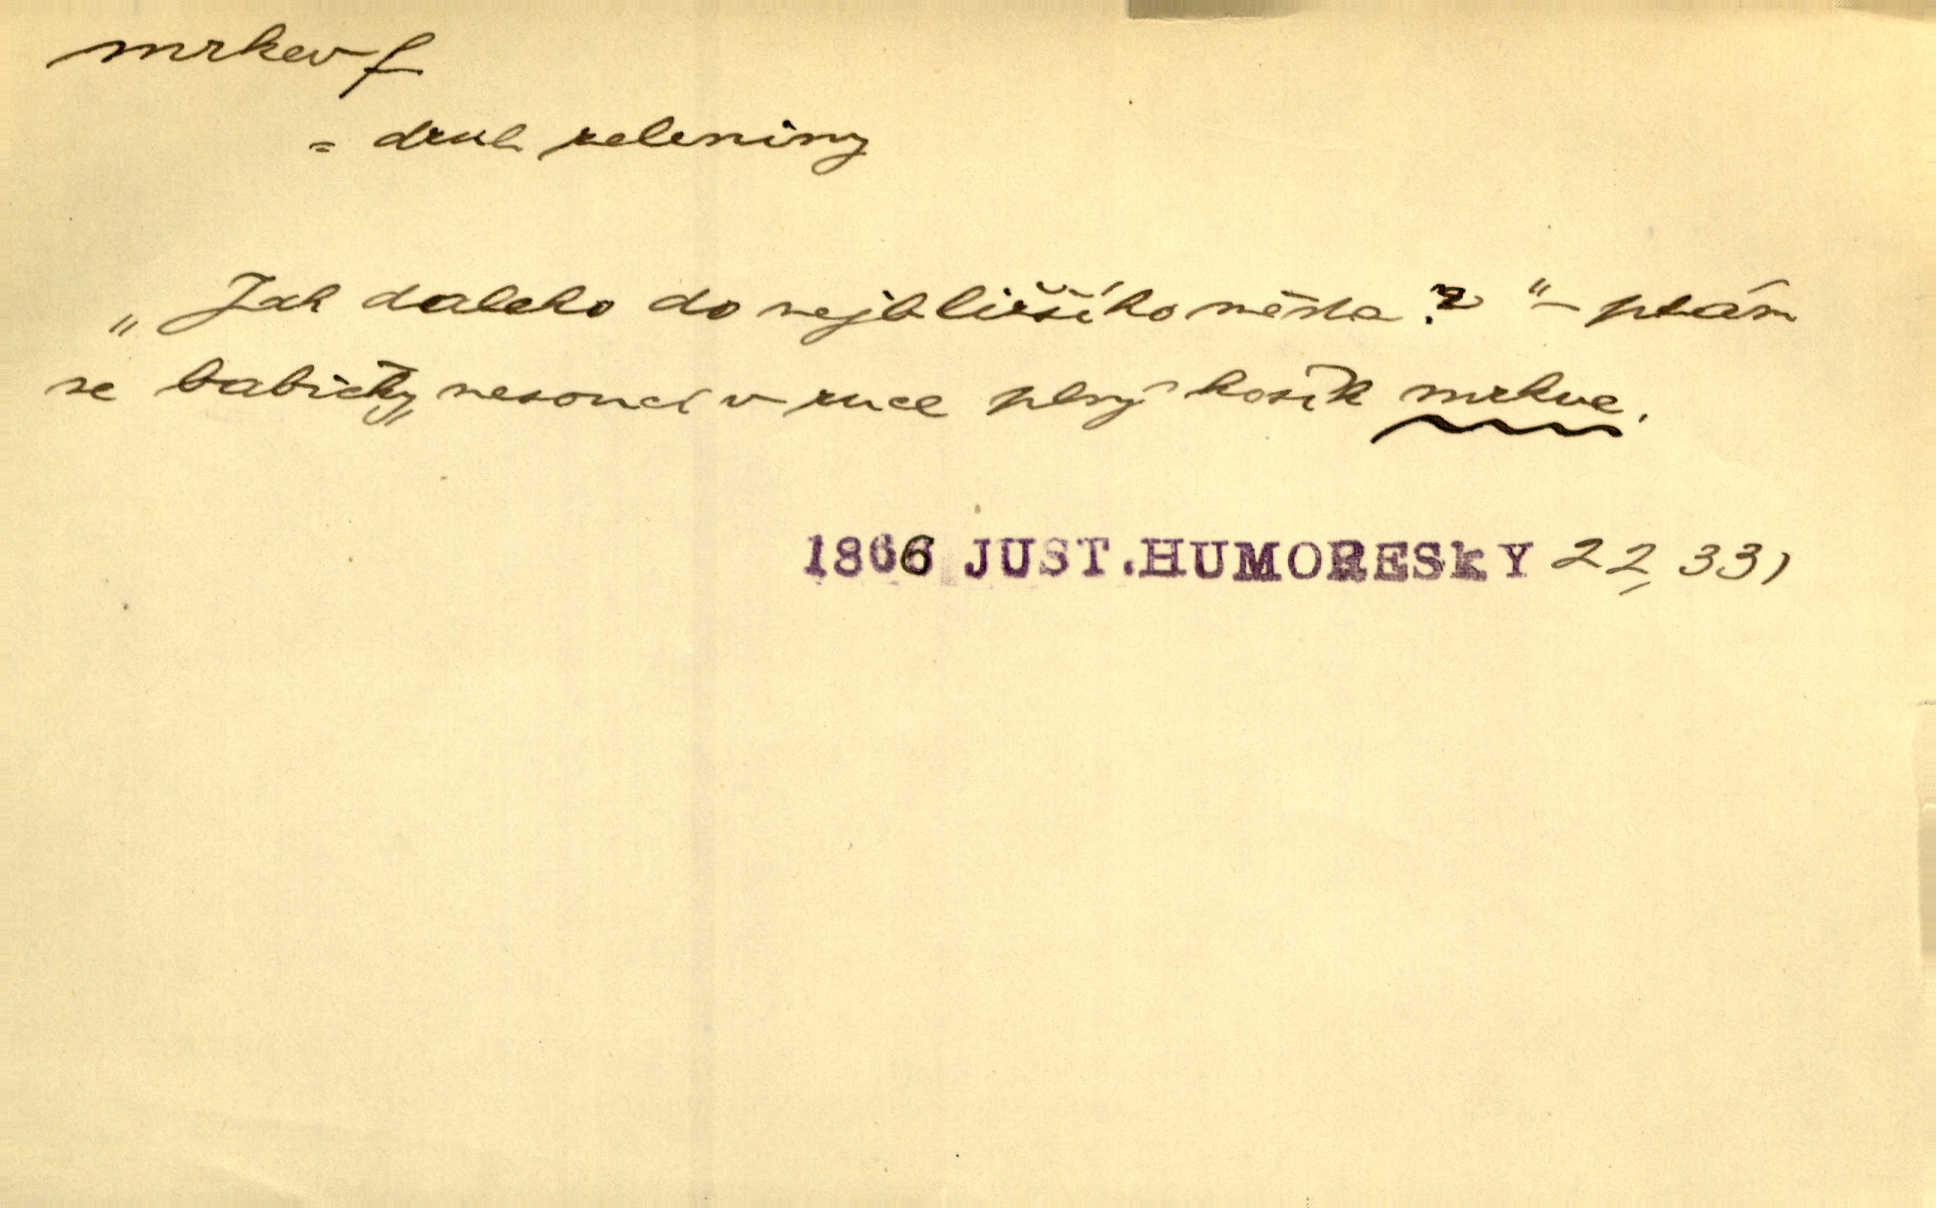 mrkev f
= druh zeleniny
„Jak daleko do nejbližšího města?“ – ptám
se babičky, nesoucí v ruce plný košík mrkve.
1866 JUST. HUMORESKY 22, 33)